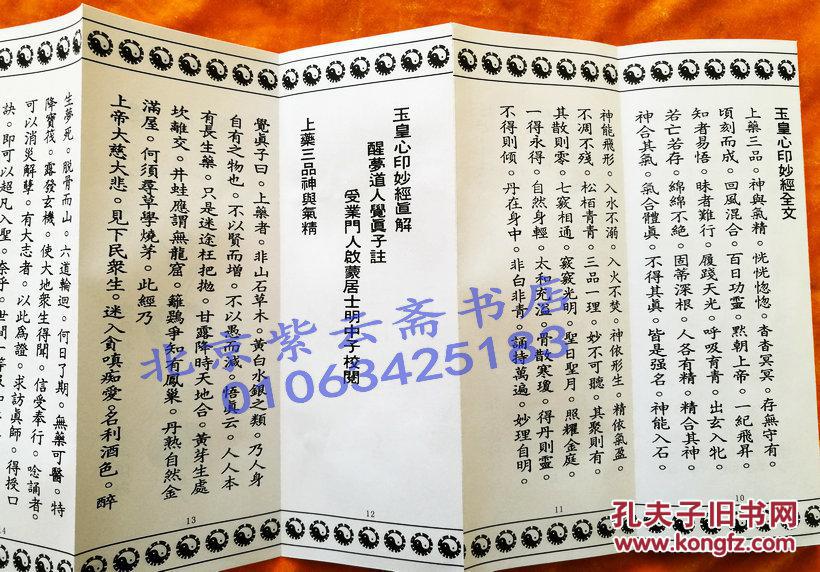 玉皇心印妙經全文
上藥三品。神與氣精。恍恍惚惚。杳杳冥冥。存無守有。
頃刻而成。回風混合。百日功靈。默朝上帝。一紀飛昇。
知者易悟。昧者難行。履踐天光。呼吸育青。出玄入牝。
若亡若存。綿綿不絕。固蒂深根。人各有精。精合其神。
神合其氣。氣合體真。不得其真。皆是强名。神能入石。
神能飛形。入水不溺。入火不焚。神依形生。精依氣盈。
不凋不殘。松栢青青。三品一理。妙不可聽。其聚則有。
其散則零。七竅相通。竅竅光明。聖日聖月。照耀金庭。
一得永得。自然身輕。太和充溢。骨散寒瓊。得丹則靈。
不得則傾。丹在身中。非白非青。誦持萬遍。妙理自明。
玉皇心印妙經真解
醒夢道人覺真子註
受業門人啟蒙居士明中子校閱
上藥三品神與氣精
覺真子曰。上藥者。非山石草木。黃白水銀之類。乃人身
自有之物也。不以賢而增。不以愚而減。悟真云。人人本
有長生藥。只是迷途枉把拋。甘露降時天地合。黃芽生處
坎離交。井蛙應謂無龍窟。籬鷃爭知有鳳巢。丹熟自然金
滿屋。何須尋草學燒茅。此經乃
上帝大慈大悲。見下民衆生。迷入貪嗔痴愛。名利酒色。醉
生夢死。脫骨而山。六道輪迴。何日了期。無藥可醫。特
降寶筏。露發玄機。使大地衆生得聞。信受奉行。唸誦者。
可以消災解孽。有大志者。以此為證。求訪真師。得授口
訣。即可以超凡入聖。奈乎。世間
10
11
12
13
14
北京紫云斋书店
01063425183
孔夫子旧书网
www.kongfz.com